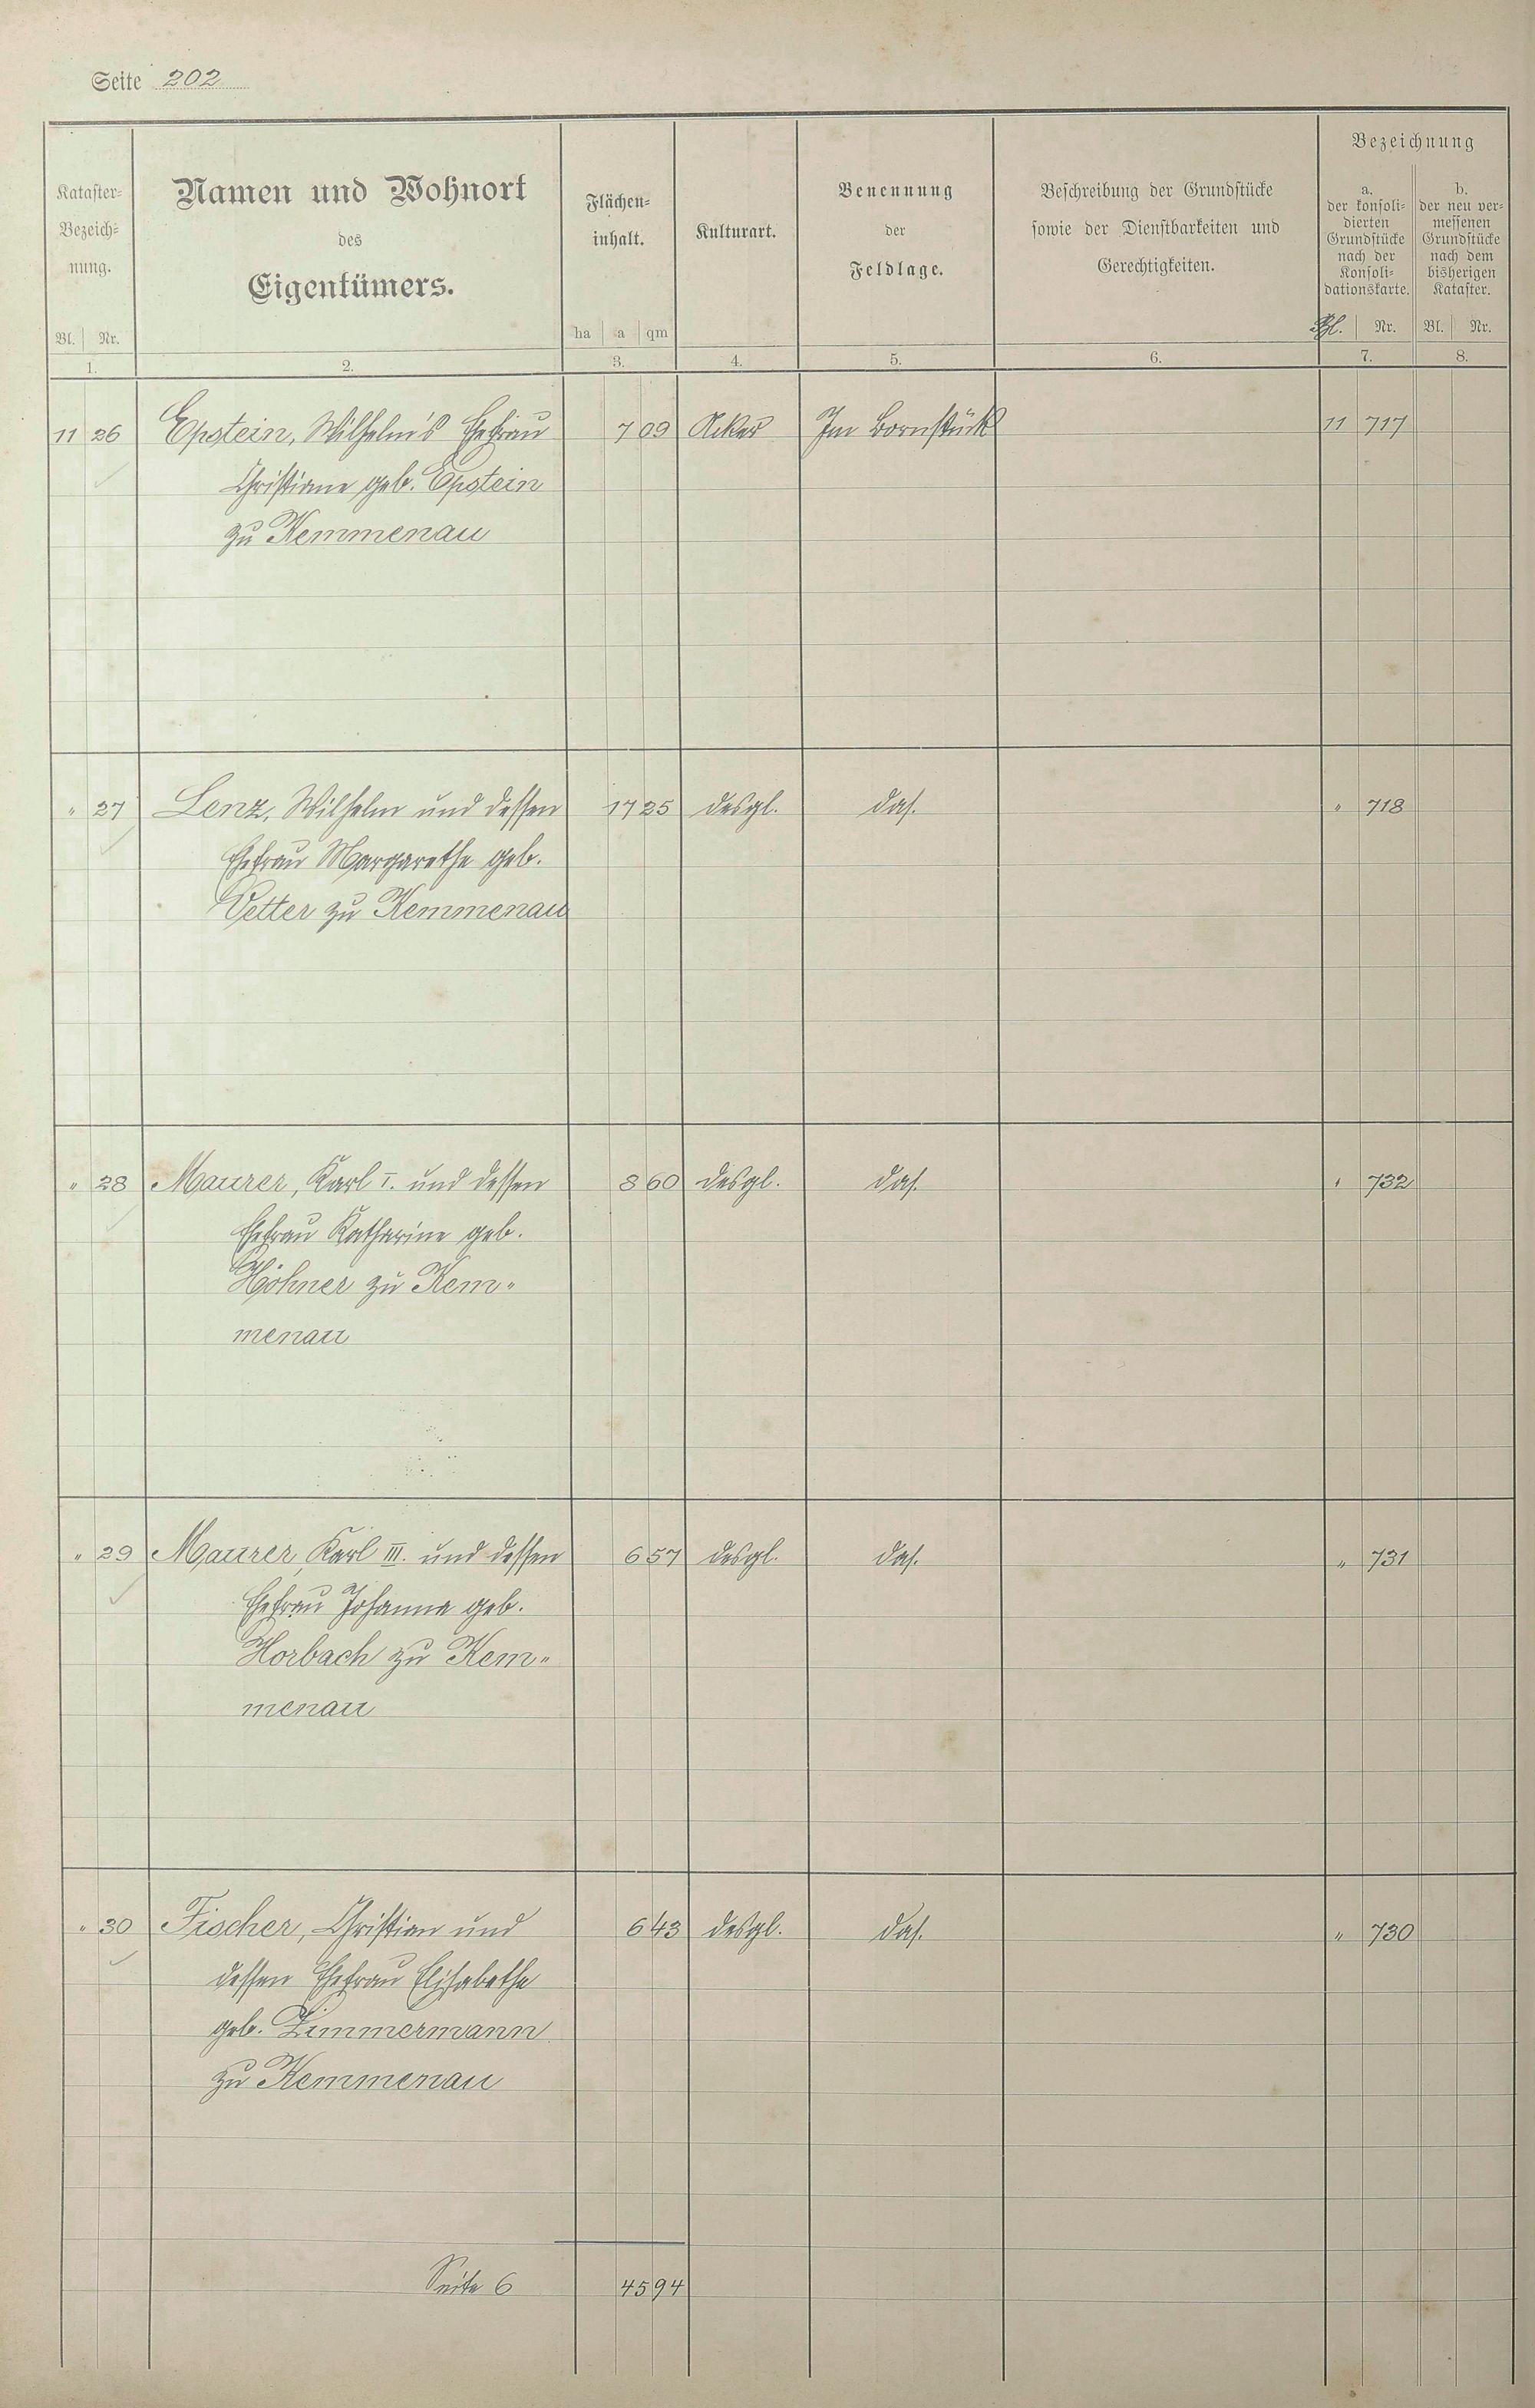 Seite 202
Kataster-Bezeichnung. Namen und Wohnort des Eigentümers. Flächeninhalt. Kulturart. Benennung der Feldlage. Beschreibung der Grundstücke sowie der Dienstbarkeiten und Gerechtigkeiten. Bezeichnung
a. der konsolidierten Grundstücke nach der Konsolidationskarte. b. der neu vermessenen Grundstücke nach dem bisherigen Kataster.
Bl. Nr. ha a qm Bl. Nr. Bl. Nr.
1. 2. 3. 4. 5. 6. 7. 8.
11 26 Epstein, Wilhelm's Ehefrau 7 09 Acker Im Bornstück 11 717
Christiane geb. Epstein
zu Kemmenau
" 27 Lenz, Wilhelm und dessen 17 25 desgl. das. " 718
Ehefrau Margarethe geb.
Vetter zu Kemmenau
" 28 Maurer, Karl I. und dessen 8 60 desgl. das. " 732
Ehefrau Katharine geb.
Höhner zu Kem-
menau
" 29 Maurer, Karl III. und dessen 6 57 desgl. das. " 731
Ehefrau Johanna geb.
Horbach zu Kem-
menau
" 30 Fischer, Christian und 6 43 desgl. das. " 730
dessen Ehefrau Elisabethe
geb. Zimmermann
zu Kemmenau
Seite 6 45 94